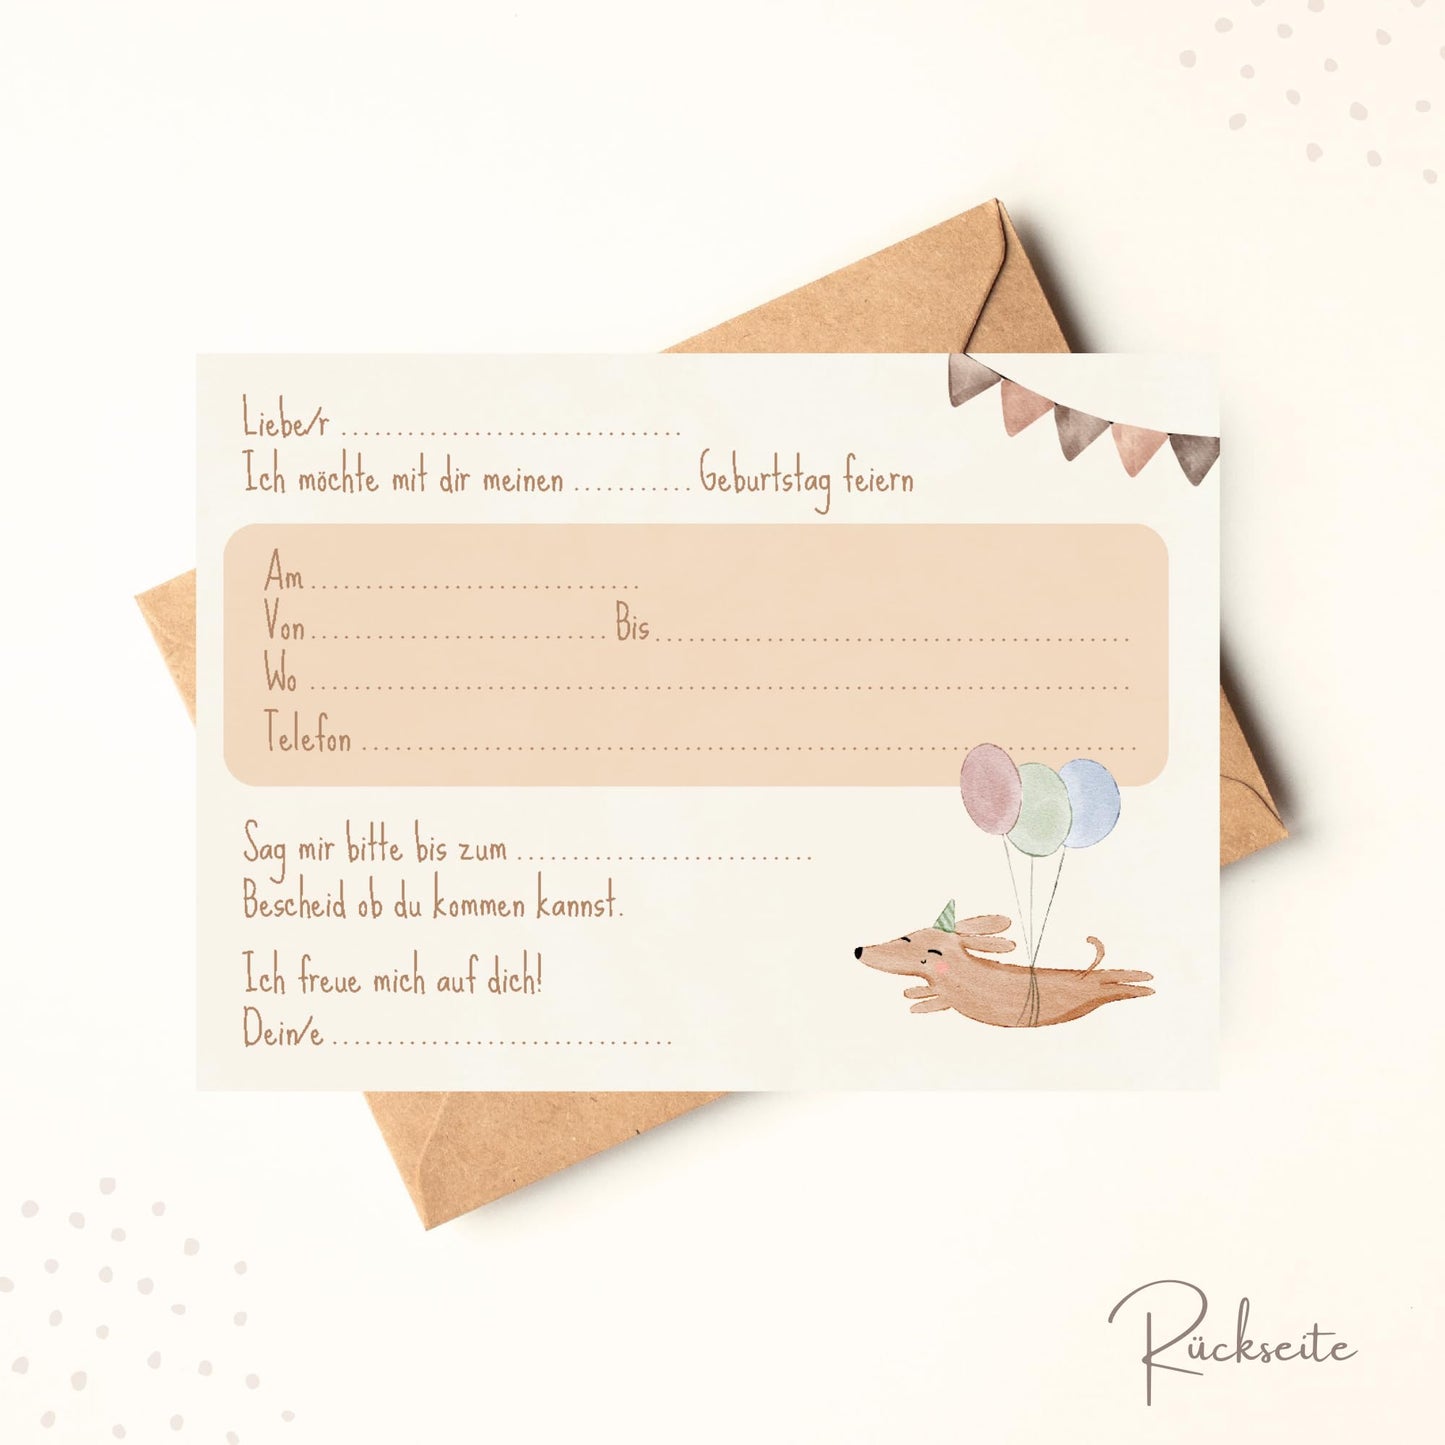 Liebe/r ...............................
Ich möchte mit dir meinen ........... Geburtstag feiern
Am..............................
Von........................... Bis...........................................
Wo ...........................................................................
Telefon .......................................................................
Sag mir bitte bis zum ...........................
Bescheid ob du kommen kannst.
Ich freue mich auf dich!
Dein/e ...............................
Rückseite